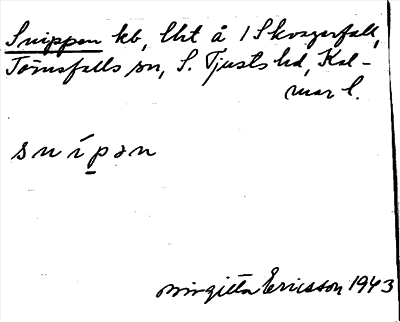 Snippen kb, lht å 1 Skogserfall,
Törnsfalls sn, S. Tjusts hd, Kal-
mar l.
snípən
Birgitta Ericsson 1943